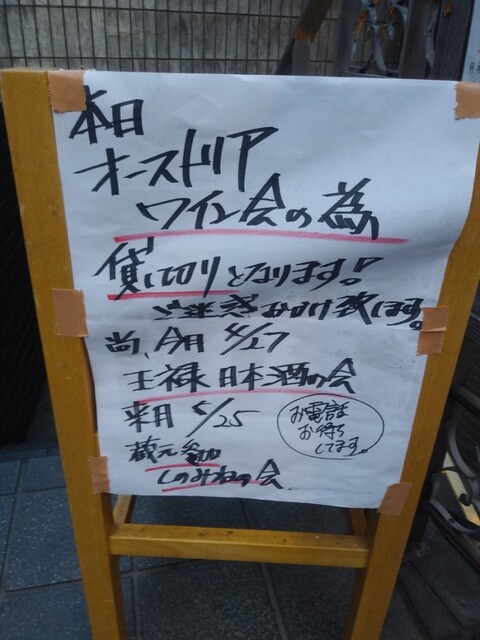 本日
オーストリア
ワイン会の為
貸し切りとなります!
ご迷惑おかけ致します。
尚、今月 4/17
王禄 日本酒の会
来月 5/25
蔵元
しのみねの会
お電話
お待ち
してます。